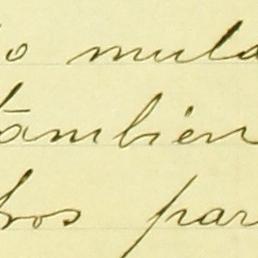 o mula
también
ros par